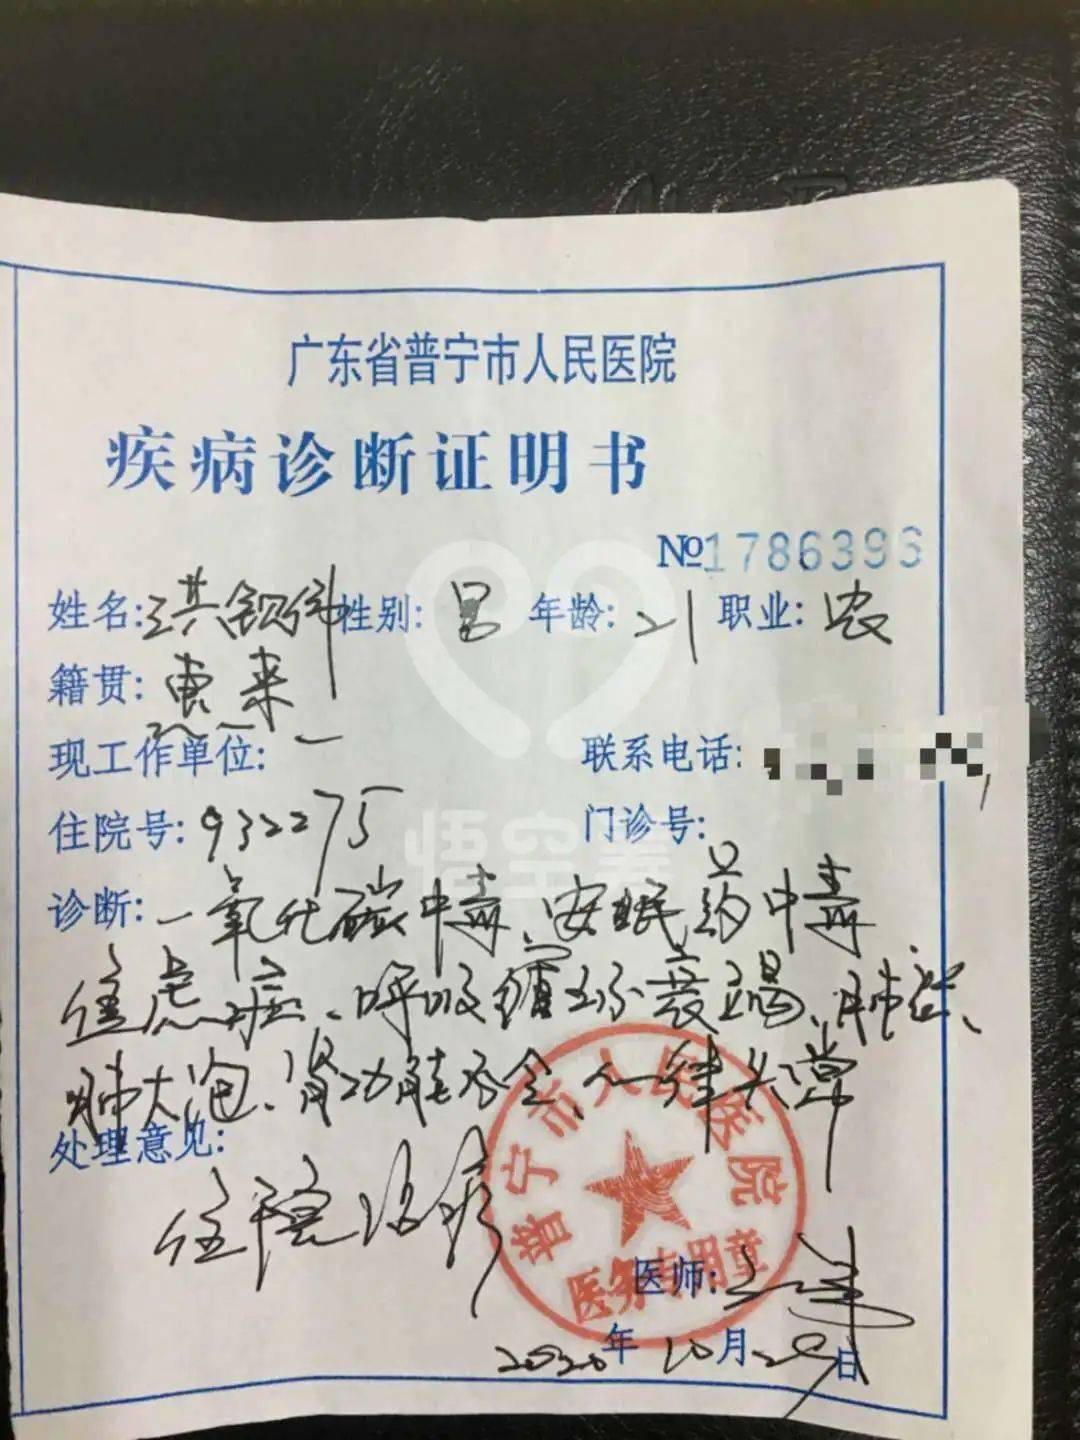 广东省普宁市人民医院
疾病诊断证明书
№1786396
姓名:洪钡伟 性别:男 年龄:21 职业:农
籍贯:惠来
现工作单位:一 联系电话:
住院号:932275 门诊号:
悟空筹
诊断:一氧化碳中毒、安眠药中毒
焦虑症、呼吸循环衰竭、肺炎、
肺大泡、肾功能不全、心律失常
处理意见:
住院治疗
普宁市人民医院
医务专用章
医师:
2020年10月29日